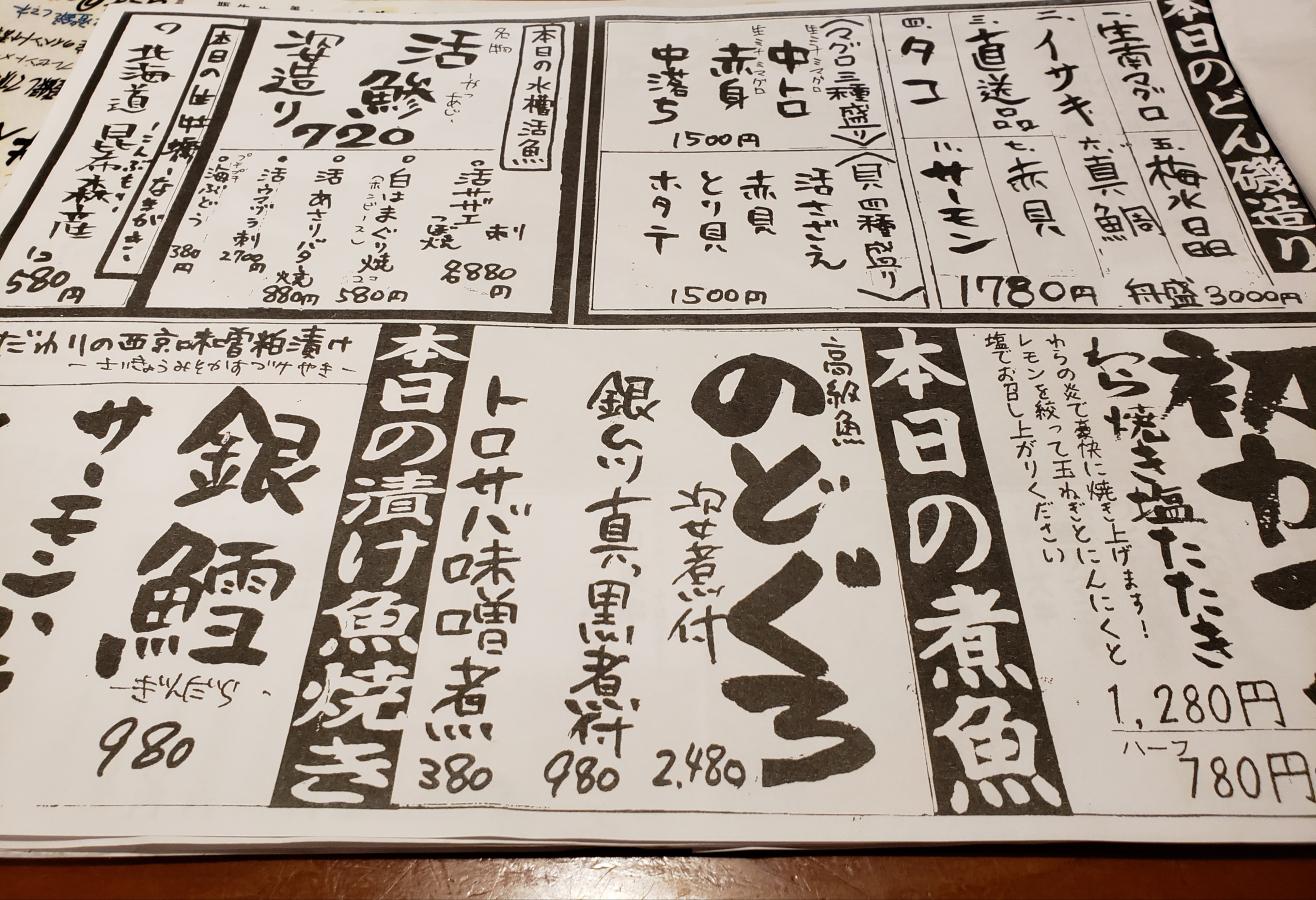 本日のどん磯造り
一、生南マグロ
二、イサキ
三、直送品
四、タコ
五、梅水晶
六、真鯛
七、赤貝
八、サーモン
1780円
舟盛3000円
〈マグロ三種盛り〉
生ミナミマグロ
中トロ
生ミナミマグロ
赤身
中落ち
1500円
〈貝四種盛り〉
活さざえ
赤貝
とり貝
ホタテ
1500円
本日の水槽活魚
名物
活鯵
かつあじ
姿造り
720
○活サザエ
刺
つぼ焼
各880円
○白はまぐり焼
(ホンビース)
2コ
580円
○活あさりバター焼
880円
・活ウマヅラ刺
2700円
プチプチ
○海ぶどう
380円
本日の生牡蠣
北海道昆布森産
こんぶもり
なまがき
1コ
580円
初カツ
わら焼き塩たたき
わらの炎で豪快に焼き上げます!
レモンを絞って玉ねぎとにんにくと
塩でお召し上がりください
1,280円
ハーフ
780円
本日の煮魚
高級魚
のどぐろ
姿煮付
2,480
銀ムツ真黒煮付
980
トロサバ味噌煮
380
本日の漬け魚焼き
だわりの西京味噌粕漬け
ーさいきょうみそかすづけやきー
銀鱈
ーぶんだらー
980
サーモン